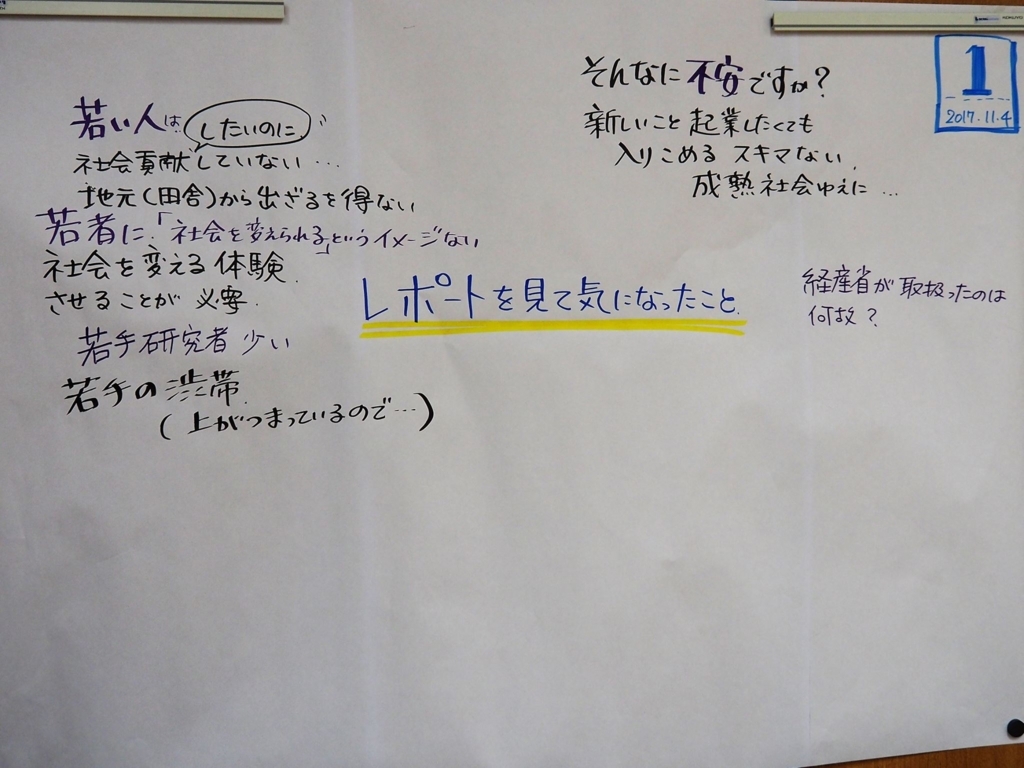 若い人は
したいのに
社会貢献していない…
地元(田舎)から出ざるを得ない
若者に「社会を変えられる」というイメージない
社会を変える体験
させることが必要
若手研究者少い
若手の渋帯
(上がつまっているので…)
そんなに不安ですか?
新しいこと起業したくても
入りこめるスキマない
成熟社会ゆえに…
レポートを見て気になったこと
経産省が取扱ったのは
何故?
1
2017.11.4